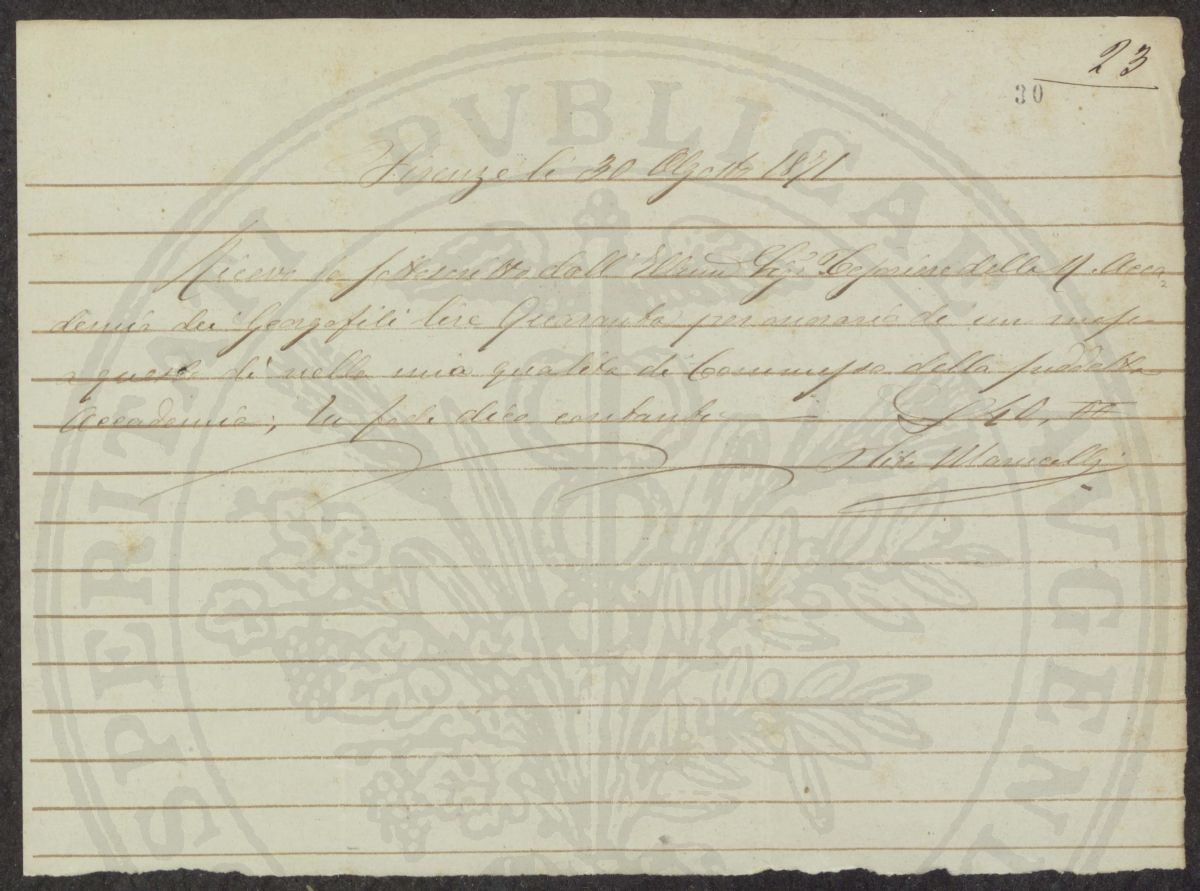 23
30
Firenze li 30 Agosto 1871
Ricevo io sottoscritto dall' Illmo Sig. Tesoriere della R. Acca
demia dei Georgofili lire Quaranta per onorario di un mese
a questo dì nella mia qualità di Commesso della suddetta
Accademia; In fede dico contanti — £ 40,
PERITATI PVBLICAE AVGEN